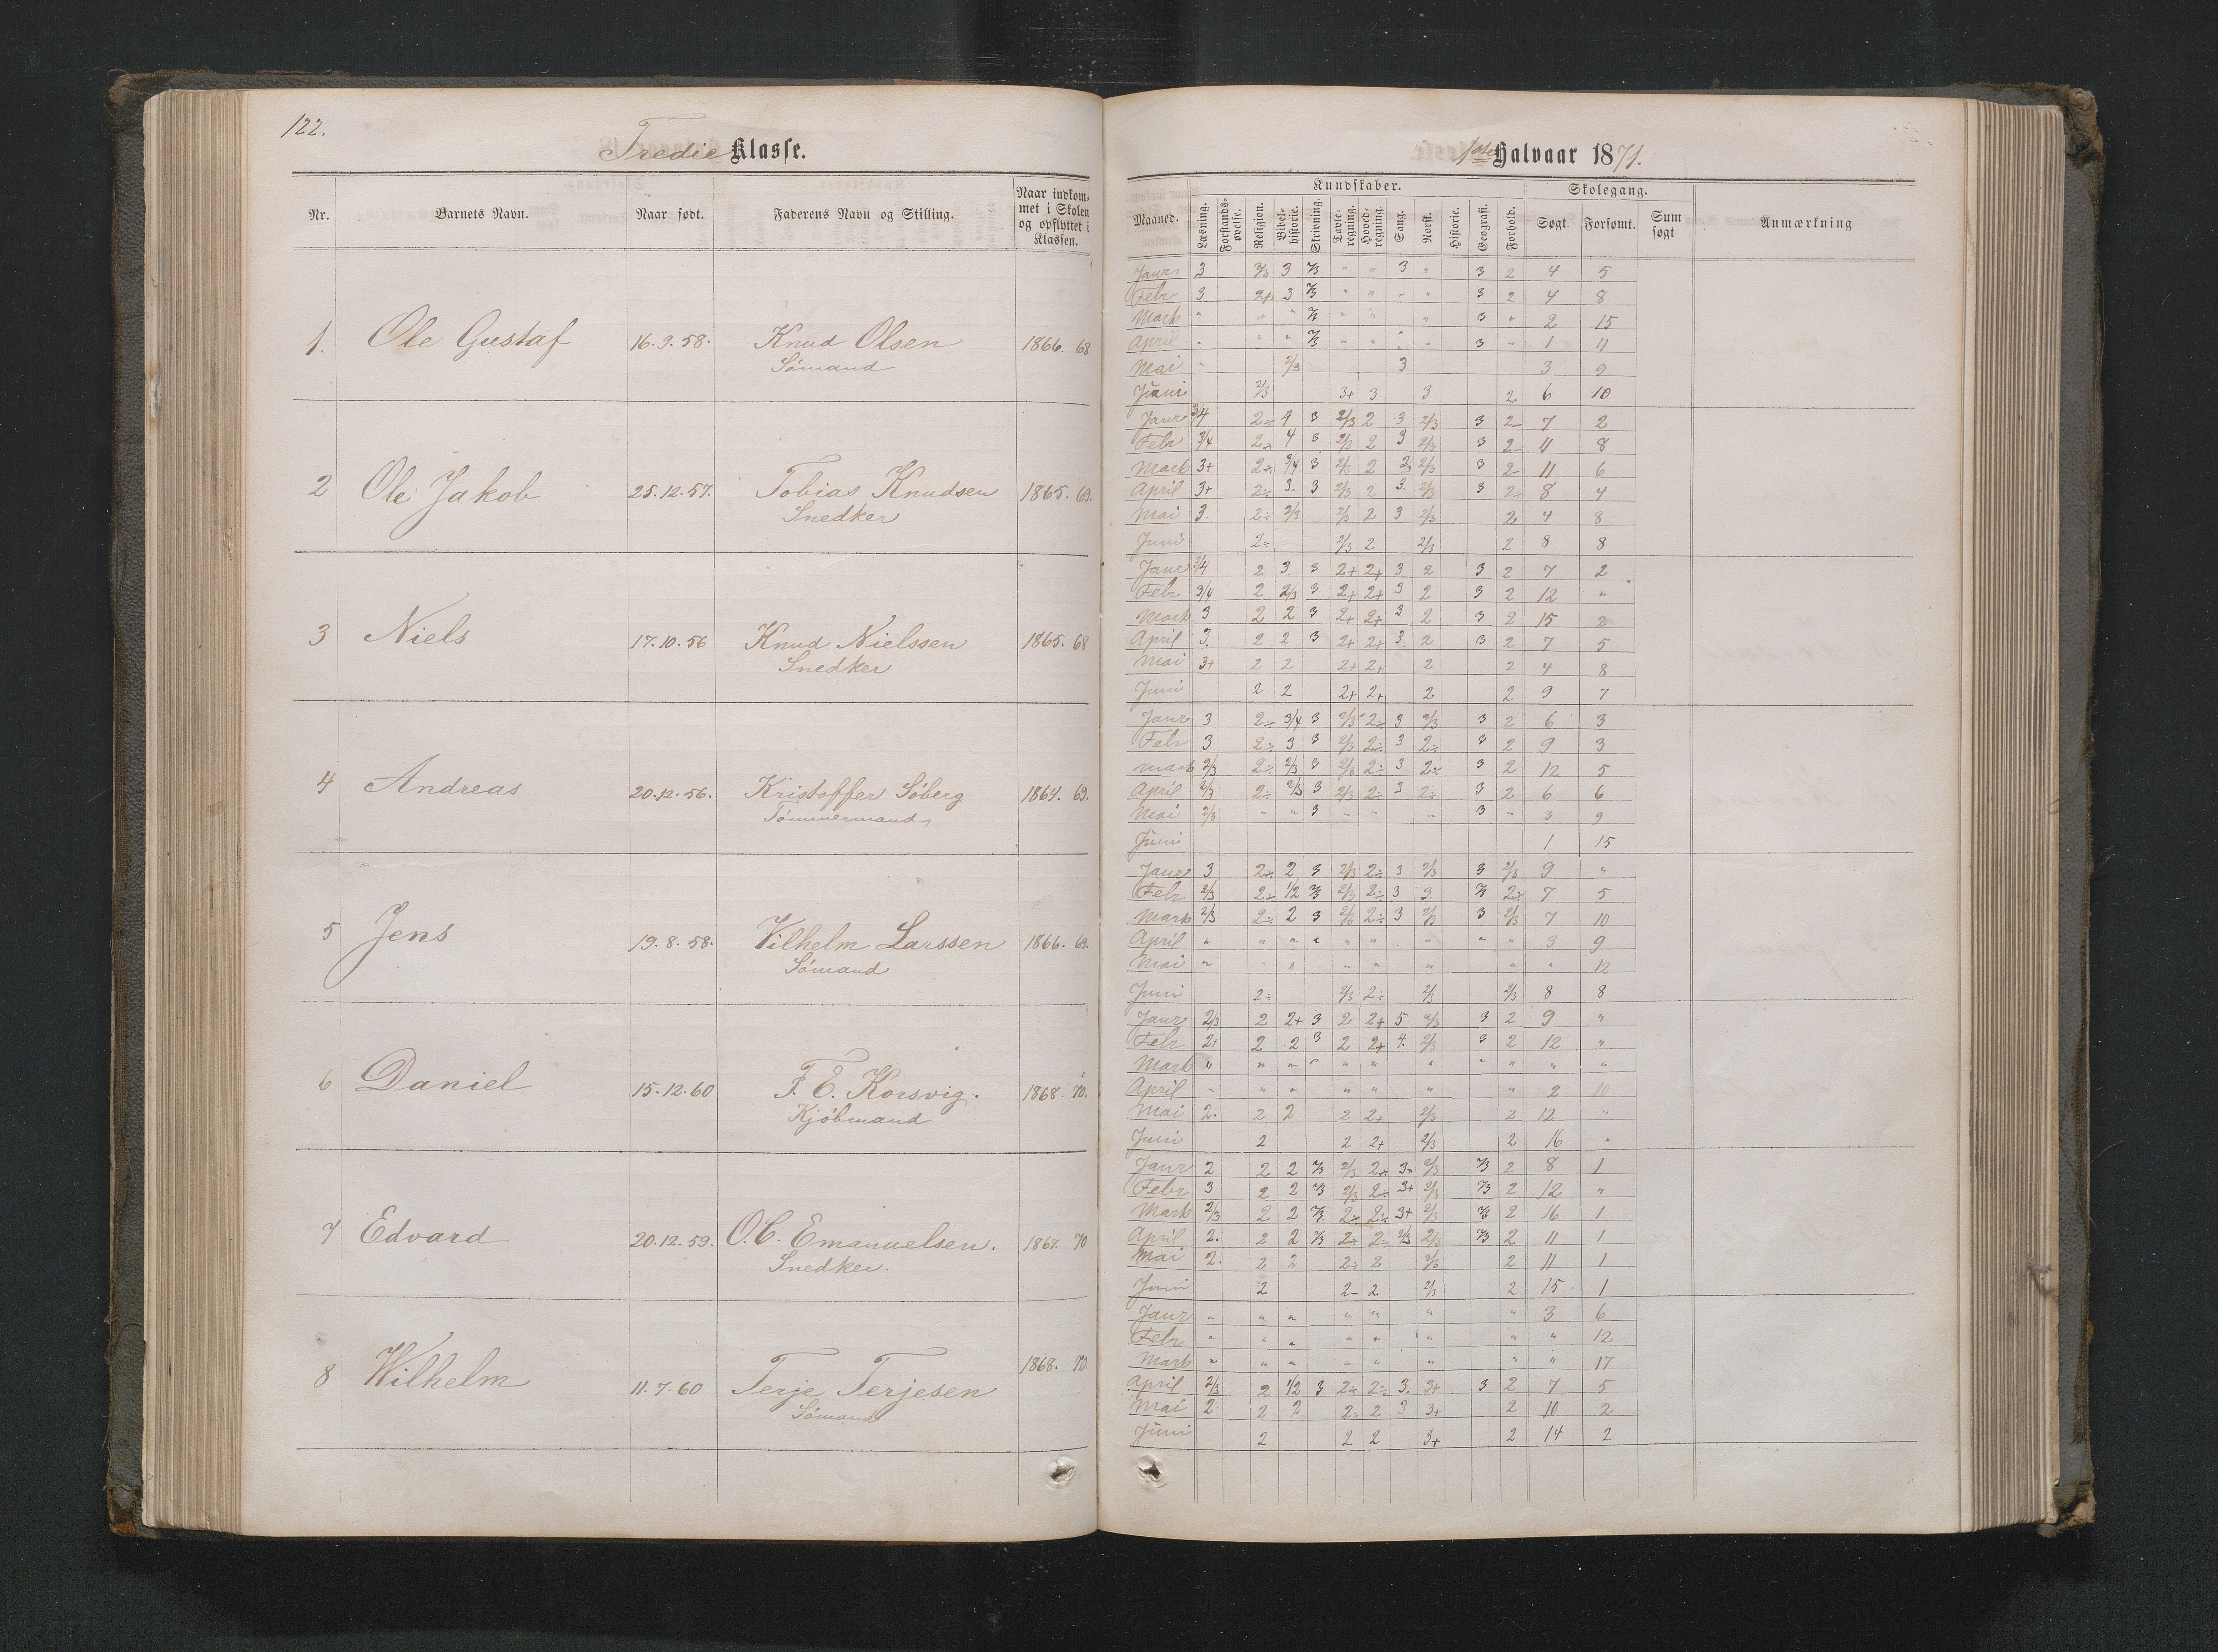 122.
Tredie Klasse.
Nr. Barnets Navn. Naar født. Faderens Navn og Stilling. Naar indkommet i Skolen og opflyttet i Klassen.
1. Ole Gustaf 16.9.58. Knud Olsen 1866. 68
Sömand
2 Ole Jakob 25.12.57. Tobias Knudsen 1865. 69.
Snedker
3 Niels 17.10.56 Knud Nielssen 1865. 68
Snedker
4 Andreas 20.12.56. Kristoffer Söberg 1864. 69.
Tömmermand
5 Jens 19.8.58. Vilhelm Larssen 1866. 69.
Sömand
6 Daniel 15.12.60 F. E. Korsvig. 1868. 70.
Kjöbmand
7 Edvard 20.12.59. O. C. Emanuelsen. 1867. 70
Snedker.
8 Wilhelm 11.7.60 Terje Terjesen 1868. 70.
Sömand
1ste Halvaar 1871.
Kundskaber. Skolegang.
Maaned. Læsning. Forstandsøvelse. Religion. Bibelhistorie. Skrivning. Tavleregning. Hovedregning. Sang. Norsk. Historie. Geografi. Forhold. Søgt. Forsømt. Sum søgt Anmærkning
Janr 3 2/3 3 2/3 " " 3 " 3 2 4 5
Febr 3 2+ 3 2/3 " " " " 3 2 4 8
Mark " " " 2/3 " " " 3 " 2 15
April " " " 2/3 " " " " 3 " 1 11
Mai " 2/3 3 3 9
Juni 2/3 3+ 3 3 2 6 10
Janr 3/4 2÷ 4 3 2/3 2 3 2/3 3 2- 7 2
Febr 3/4 2÷ 4 3 2/3 2 3 2/3 3 2- 11 8
Mark 3+ 2÷ 3/4 3 2/3 2 2/3 2/3 3 2- 11 6
April 3+ 2÷ 3 3 2/3 2 3 2/3 3 2+ 8 4
Mai 3. 2÷ 2/3 2/3 2 3 2/3 2 4 8
Juni 2÷ 2/3 2 2/3 2 8 8
Janr 3/4 2 3. 3 2+ 2+ 3 2 3 2 7 2
Febr 3/4 2 2/3 3 2+ 2+ 3 2 3 2 12 "
Mark 3 2 2 3 2+ 2+ 3 2 3 2 15 2
April 3. 2 2 3 2+ 2+ 3. 2 3 2 7 5
Mai 3+ 2 2 2+ 2+ 2 2 4 8
Juni 2 2 2+ 2+ 2 2 9 7
Janr 3 2÷ 3/4 3 2/3 2÷ 3 2/3 3 2 6 3
Febr 3 2÷ 3 3 2/3 2÷ 3 2÷ 3 2 9 3
Mark 2/3 2÷ 2/3 3 2/3 2÷ 3 2÷ 3 2 12 5
April 2/3 2÷ 2/3 3 2/3 2÷ 3 2÷ 3 2 6 6
Mai 2/3 " " 3 " " " 3 " 3 9
Juni 1 15
Janr 3 2÷ 2 3 2/3 2÷ 3 2/3 3 2/3 9 "
Febr 2/3 2÷ 1/2 2/3 2/3 2÷ 3 3 2/3 2÷ 7 5
Mark 2/3 2÷ 2 3 2/3 2÷ 3 2/3 3 2/3 7 10
April " " " " " " " " " 3 9
Mai " " " " " " " " 12
Juni 2÷ 2/3 2÷ 2/3 2/3 8 8
Janr 2/3 2 2+ 3 2 2+ 5 2/3 3 2 9 "
Febr 2+ 2 2 3 2 2+ 4. 2/3 3 2 12 "
Mark " " " " " " " " " " "
April " " " " " " " 2 10
Mai 2. 2 2 2 2+ 2/3 2 12 "
Juni 2 2 2+ 2/3 2 16 "
Janr 2 2 2 2/3 2/3 2÷ 3÷ 2/3 2/3 2 8 1
Febr 3 2 2 2/3 2/3 2÷ 3+ 2/3 2/3 2 12 "
Mark 2/3 2 2 2/3 2÷ 2÷ 3+ 2/3 2/3 2 16 1
April 2. 2 2 2/3 2÷ 2÷ 2/3 2/3 2/3 2 11 1
Mai 2. 2 2 2÷ 2 2/3 2 11 1
Juni 2 2- 2 2/3 2 15 1
Janr " " " " " " " 3 6
Febr " " " " " " " " 12
Mark " " " " " " " " 17
April 2/3 2 1/2 3 2÷ 2÷ 3. 3+ 3 2 7 5
Mai 2. 2 2 2÷ 2 3 3+ 2 10 2
Juni 2 2 2 3+ 2 14 2